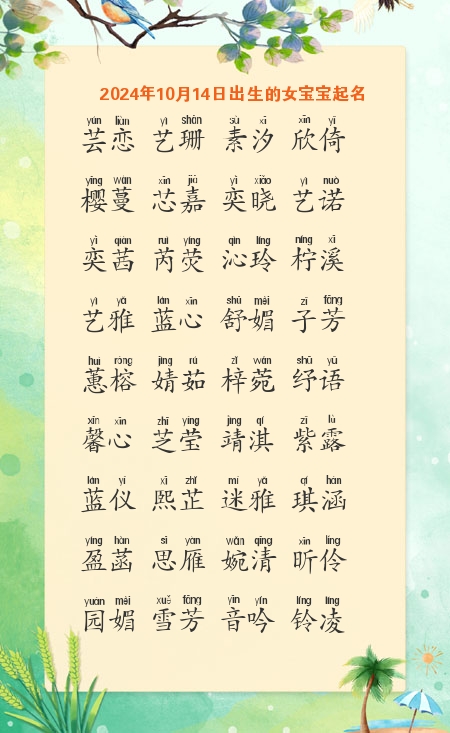 2024年10月14日出生的女宝宝起名
yún liàn yì shān sù xī xīn yǐ
芸恋 艺珊 素汐 欣倚
yīng wàn xīn jiā yì xiǎo yì nuò
樱蔓 芯嘉 奕晓 艺诺
yì qiàn ruì yíng qìn líng níng xī
奕茜 芮荧 沁玲 柠溪
yì yǎ lán xīn shū mèi zǐ fāng
艺雅 蓝心 舒媚 子芳
huì róng jìng rú zǐ wǎn shū yǔ
蕙榕 婧茹 梓菀 纾语
xīn xīn zhī yíng jìng qí zǐ lù
馨心 芝莹 靖淇 紫露
lán yí xī zhǐ mí yǎ qí hán
蓝仪 熙芷 迷雅 琪涵
yíng hàn sī yàn wǎn qīng xīn líng
盈菡 思雁 婉清 昕伶
yuán mèi xuě fāng yīn yín líng líng
园媚 雪芳 音吟 铃凌